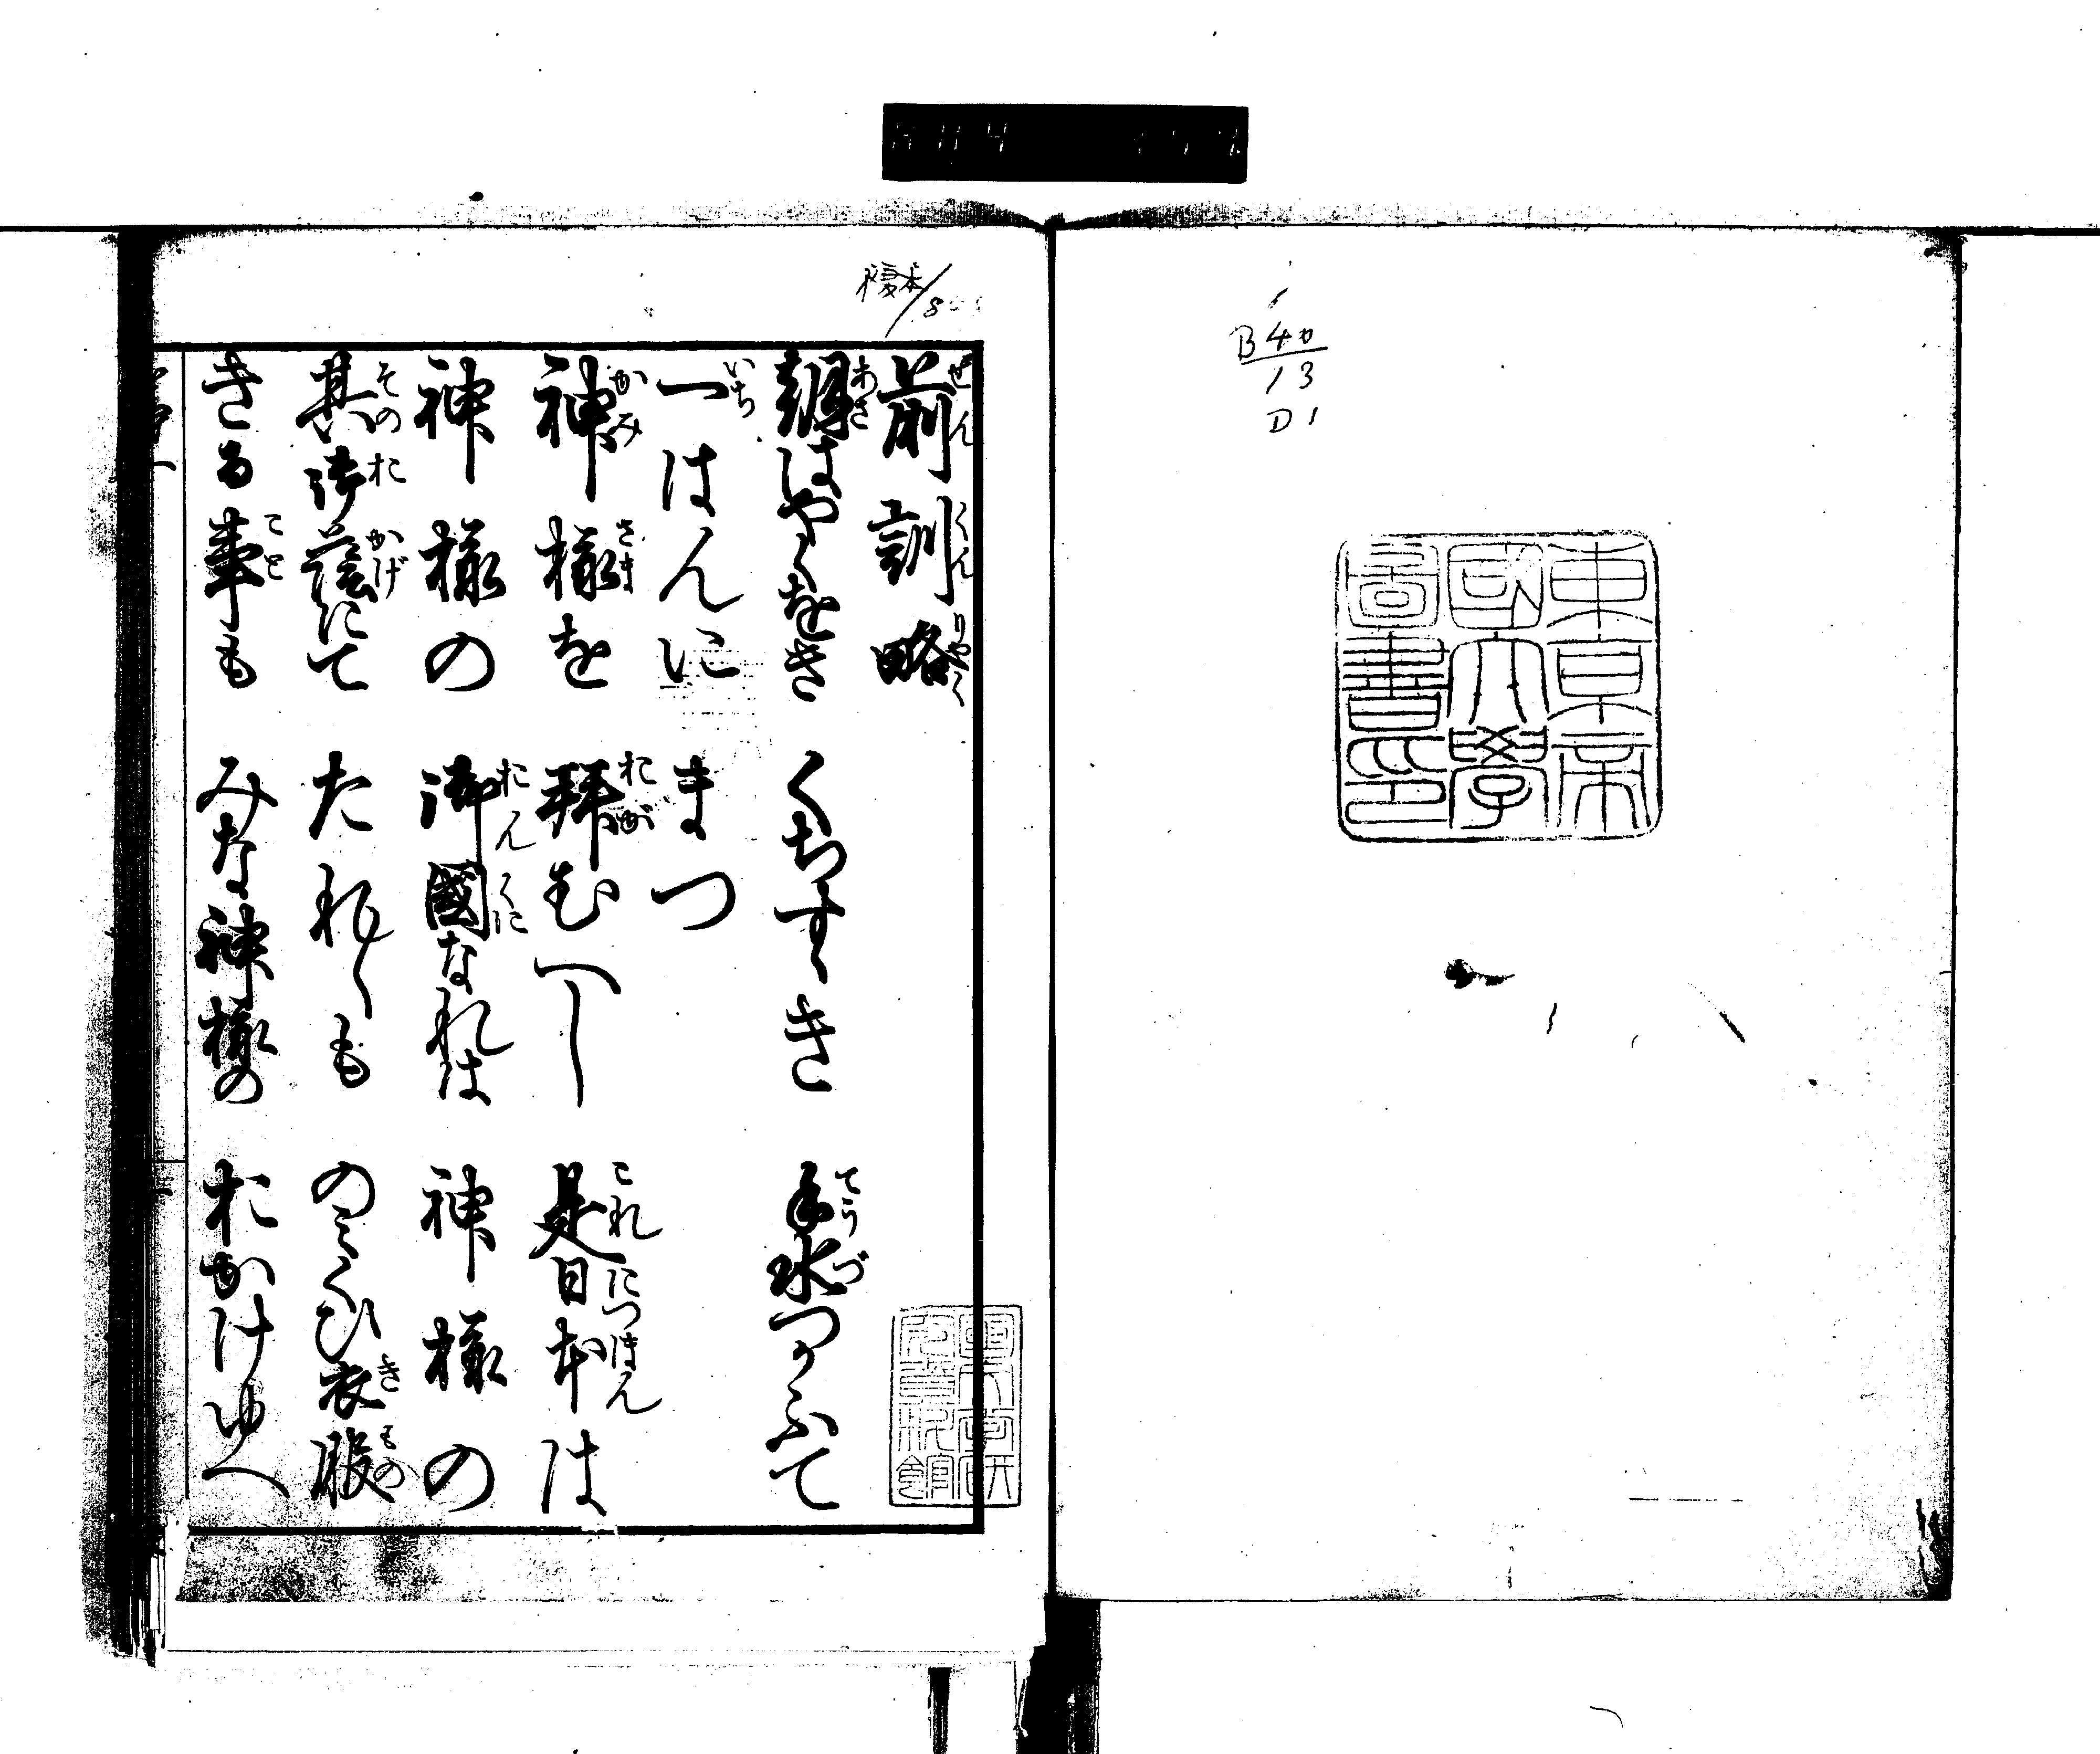 B40
13
D1
東京帝
國大學
圖書印
複本
前訓略
朝はやくをき くちすゝき 手水つかふて
一はんに まつ
神様を 拝むへし 是日本は
神様の 御國なれは 神様の
其御蔭にて たれ〳〵も のみくひ衣服
きる事も みな神様の おかけゆへ